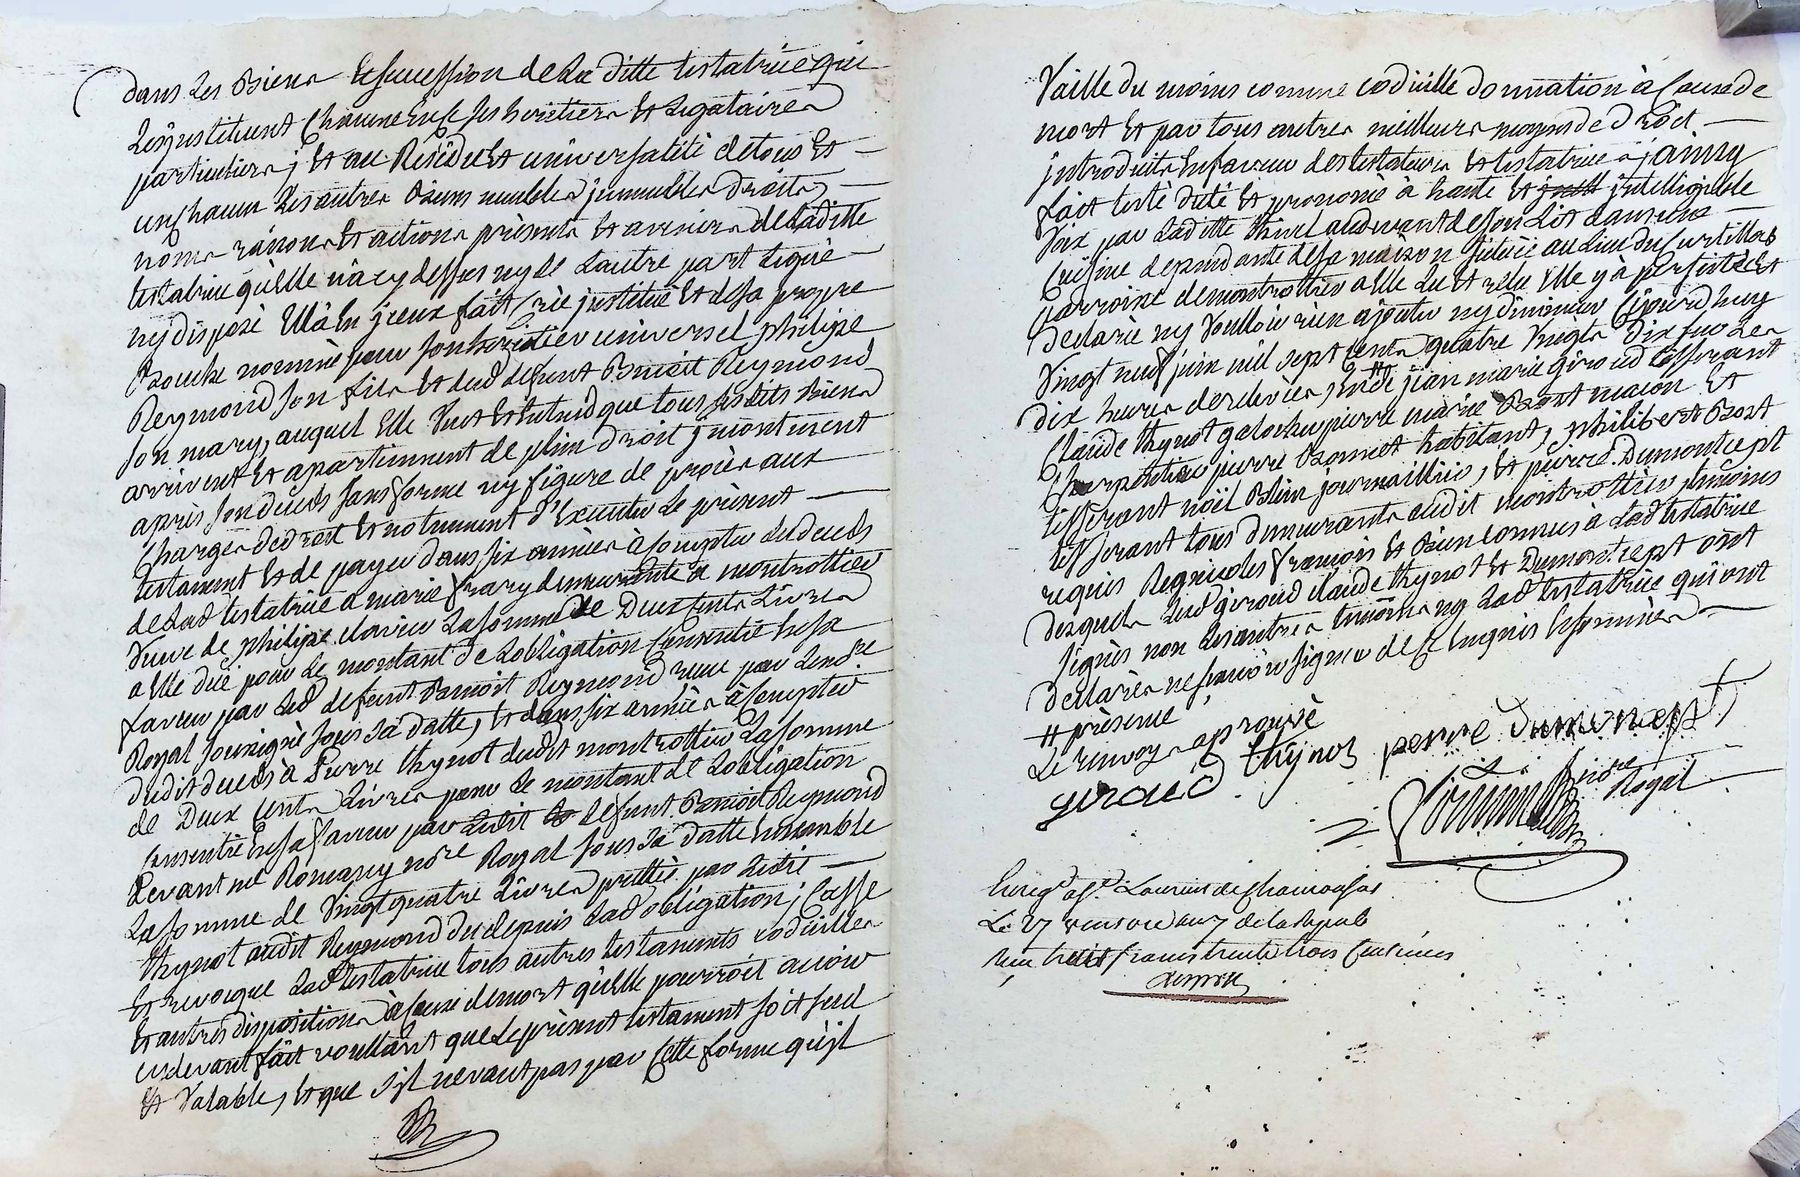 dans Les Biens & succession de La ditte testatrice qui
Les instituent Chacun En ce ses heritiers Et Legataires
particuliers; Et au Residu Et universalité de tous Et
un chacun Les autres Biens meubles jmmeubles Droits,
noms raisons Et actions présents Et avenirs de Laditte
testatrice quelle n'a cy dessus ny de Lautre part Légué
ny disposé Elle à En jceux fait Créé jnstitué Et de sa propre
Bouche nommé pour son heritier universel philipe
Reymond son fils Et dud defunt Benoit Reymond
son mary, auquel Elle Veut Et Entend que tous sesdits Biens
arrivent Et apartiennent de plein Droit jncontinent
après son décès sans forme ny figure de procès aux
Charges de droit Et notamment d'Executer Le présent
testament Et de payer dans six années à compter du décès
de Lad testatrice a marie frary demeurante a montrottier
veuve de philipe clavieu La somme de Deux Cents Livres
a Elle duë pour Le montant de Lobligation Consentie En sa
faveur par Led defunt Benoit Reymond reçue par Le no.re
Royal soussigné sous sa datte, Et dans six années à Compter
dudit décès à Pierre thynot dudit montrottier La somme
de Deux Cents Livres pour Le montant de Lobligation
Consentie En sa faveur par Ledit defunt Benoit Reymond
devant me Romany no.re Royal sous sa datte Ensemble
La somme de Vingt quatre Livres prettée par Ledit
thynot audit Reymond du depuis Lad obligation; Casse
Et revocque Lad testatrice tous autres testaments codicilles
Et autres dispositions à Cause de mort qu'elle pourroit avoir
cy devant fait voullant que Le présent testament soit seul
Et Valable, Et que s'jl ne vaut pas par Cette forme qu'jl
Vaille du moins comme codicille donnation à Cause de
mort Et par tous autres meilleurs moyens de Droit
jntroduits En faveur des testateurs Et testatrices; ainsy
fait testé dicté Et prononcé à haute Et jntelligible
Voix par Laditte au devant de son Lit dans une
Cuisine dépendante de sa maison située au Lieu du Curtillard
parroisse de montrottier a Elle Lu Et relu Elle y à persisté Et
Declaré ny Voulloir rien ajouter ny diminuer Cejourd'huy
Vingt neuf juin mil sept Cents quatre Vingts Dix sur Les
dix heures de relevée, En de # jean marie giroud tisserant
Claude thynot galocher pierre marie Bront maçon Et
Charpentier pierre Bonnet habitant, philibert Bront
tisserant noël Blein journaillier, Et pierre Dumontcept
tisserant tous demeurants audit montrottier témoins
requis Regnicoles françois Et Bien connus à Lad testatrice
Desquels Led giroud Claude thynot Et Dumontcept ont
signés non Les autres témoins ny Lad testatrice qui ont
déclarés ne sçavoir signer de Ce Enquis Et sommés
# présence
Le renvoy aprouvé
giraud thÿnot pierre Dumoncept
no.re Royal
Enreg.é à S.t Laurent de Chamousset
Le 27 an 7 de la Repub
Reçu huit francs trente trois Centimes